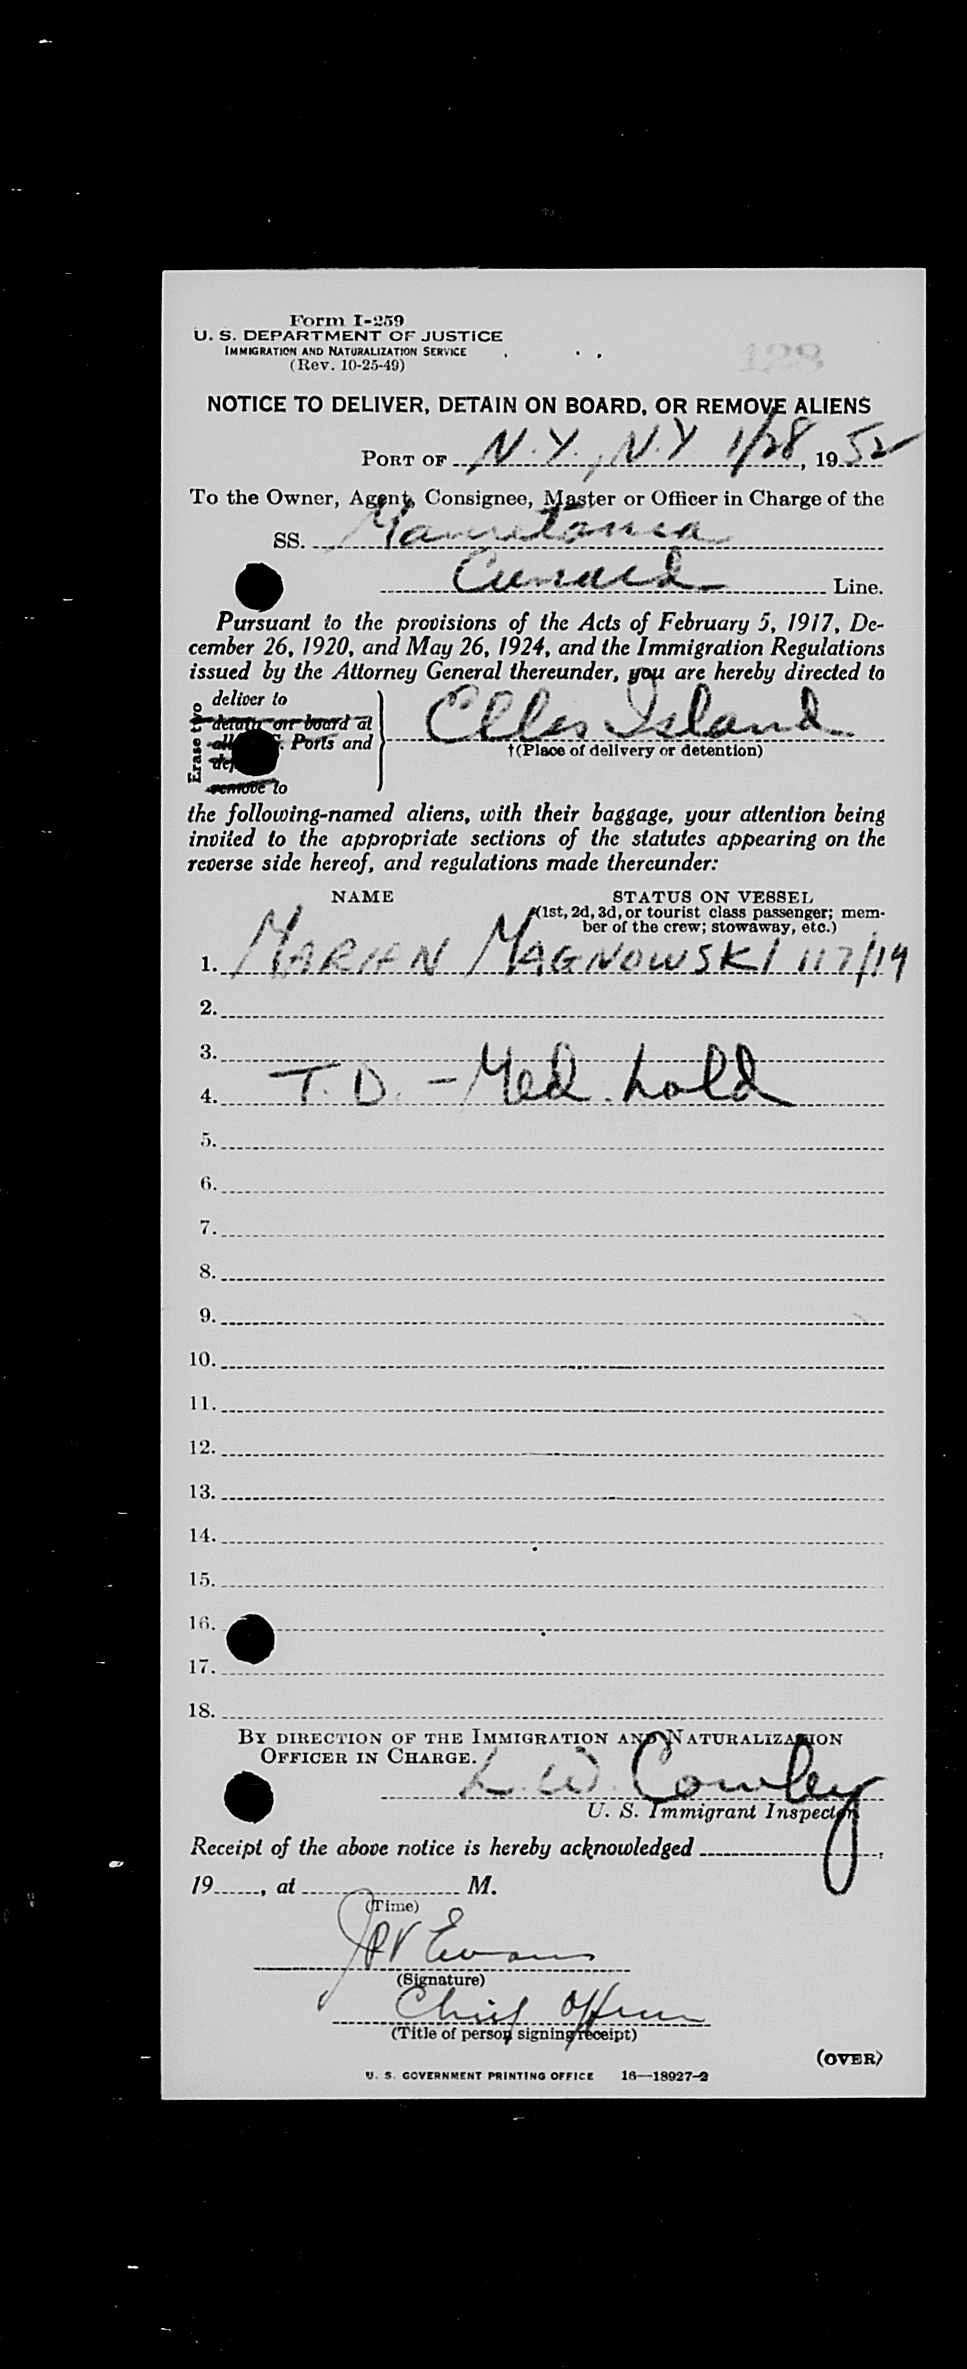 Form I-259
U. S. DEPARTMENT OF JUSTICE
IMMIGRATION AND NATURALIZATION SERVICE
(Rev. 10-25-49)
128
NOTICE TO DELIVER, DETAIN ON BOARD, OR REMOVE ALIENS
PORT OF N.Y., N.Y 1/28, 1952
To the Owner, Agent, Consignee, Master or Officer in Charge of the
SS. Mauretania
Cunard Line.
Pursuant to the provisions of the Acts of February 5, 1917, De-
cember 26, 1920, and May 26, 1924, and the Immigration Regulations
issued by the Attorney General thereunder, you are hereby directed to
Erase two
deliver to
detain on board at
Ports and
remove to
Ellis Island
†(Place of delivery or detention)
the following-named aliens, with their baggage, your attention being
invited to the appropriate sections of the statutes appearing on the
reverse side hereof, and regulations made thereunder:
NAME STATUS ON VESSEL
(1st, 2d, 3d, or tourist class passenger; mem-
ber of the crew; stowaway, etc.)
1. MARIAN MAGNOWSKI 117/19
2.
3.
4. T.D. - Med. hold
5.
6.
7.
8.
9.
10.
11.
12.
13.
14.
15.
16.
17.
18.
BY DIRECTION OF THE IMMIGRATION AND NATURALIZATION
OFFICER IN CHARGE.
L. W. Cowley
U. S. Immigrant Inspector
Receipt of the above notice is hereby acknowledged ,
19 , at M.
(Time)
Evans
(Signature)
Chief Officer
(Title of person signing receipt)
(OVER)
U. S. GOVERNMENT PRINTING OFFICE 16—18927-2